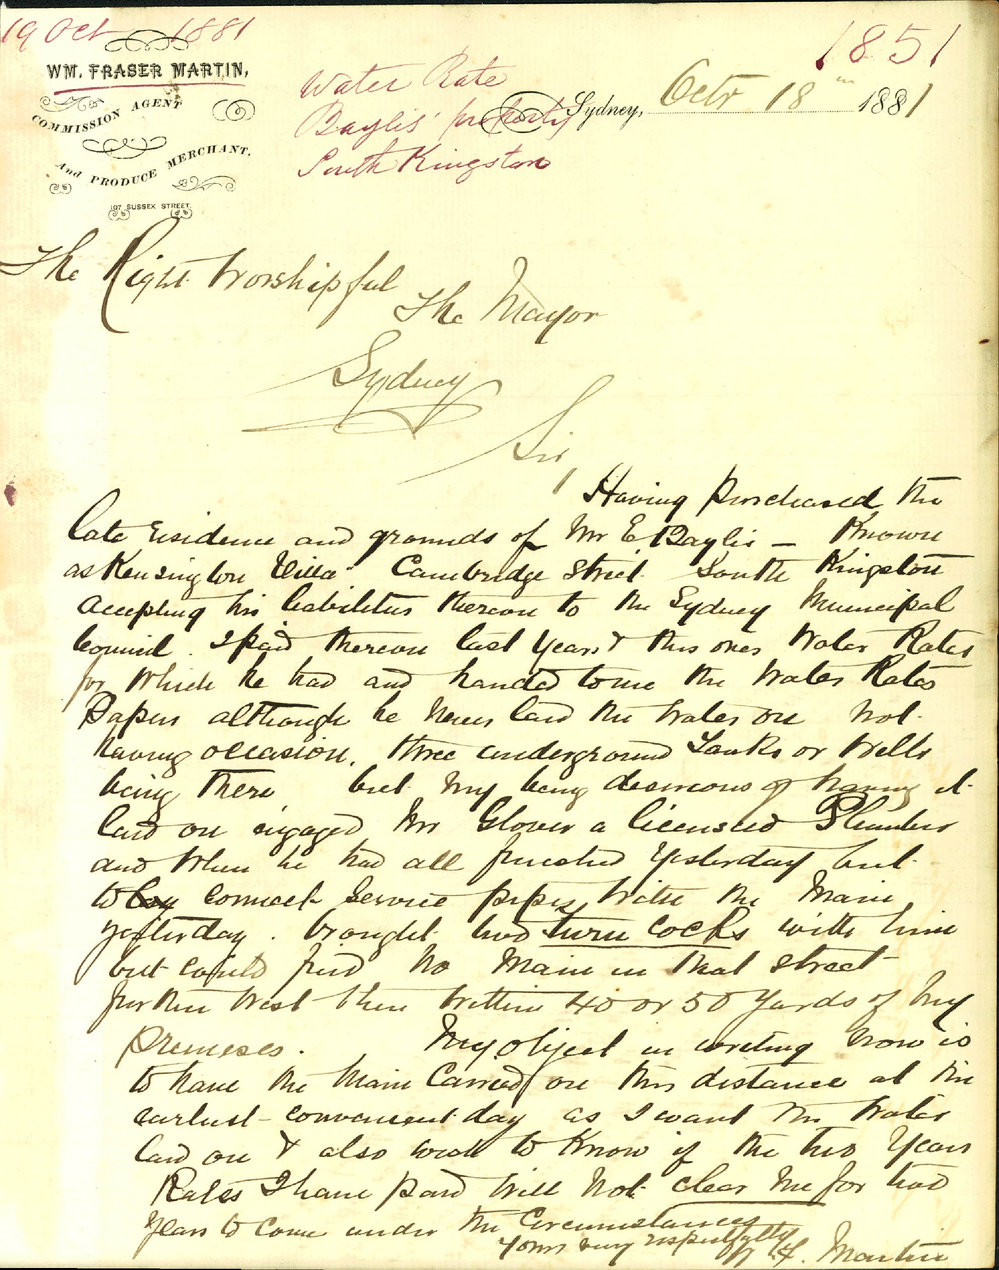 19 Oct 1881
1851
WM. FRASER MARTIN,
COMMISSION AGENT
And PRODUCE MERCHANT.
197 SUSSEX STREET.
Water Rate
Baylis' property
South Kingston
Sydney, Octr 18th 1881
The Right Worshipful
The Mayor
Sydney
Sir,
Having purchased the
late residence and grounds of Mr E Baylis — Known
as Kensington Villa Cambridge Street South Kingston
accepting his liabilities thereon to the Sydney Municipal
Council. I paid thereon last Years & this ones Water Rates
for which he had and handed to me the Water Rates
Papers although he never laid the water on not
having occasion, three underground Tanks or Wells
being there but my being desirous of having it
laid on engaged Mr Glover a licensed Plumber
and when he had all finished Yesterday but
to connect service pipes with the Main
yesterday. brought two turn cocks with him
but could find no Main in that street
further West then within 40 or 50 Yards of My
premeses. My object in writing now is
to have the Main Carried on this distance at the
earlest convenient day as I want the Water
laid on & also wish to Know if the two Years
Rates I have paid will not clear me for two
years to come under the Circumstances
Yours very respectfully
W. F. Martin